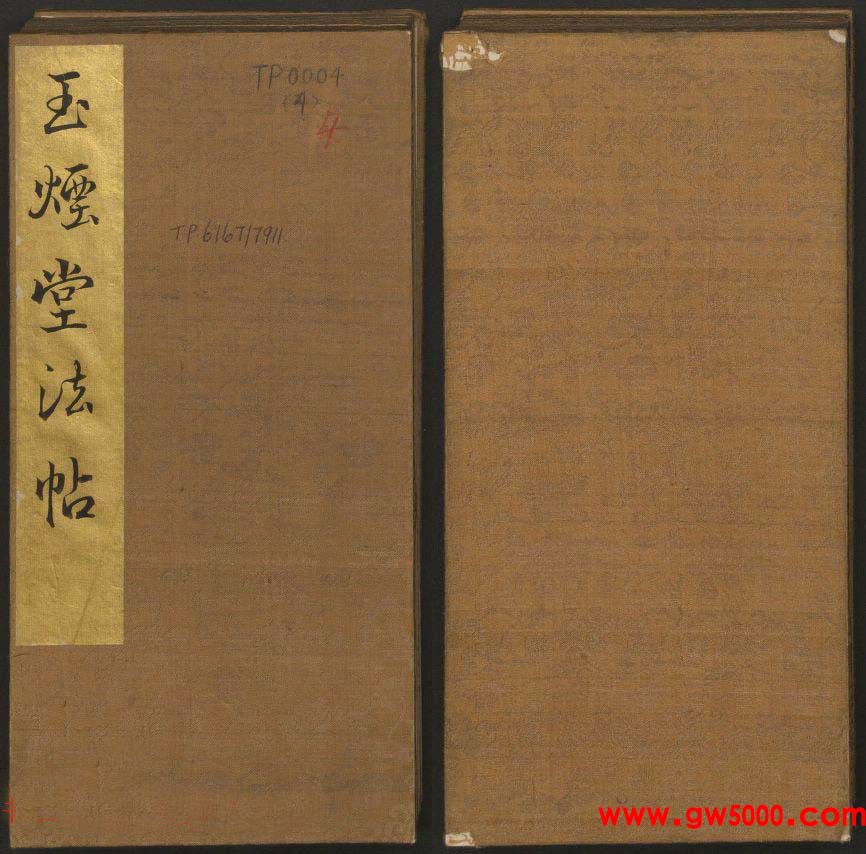 玉煙堂法帖
TP0004
(4)
4
TP6167/7911
www.gw5000.com